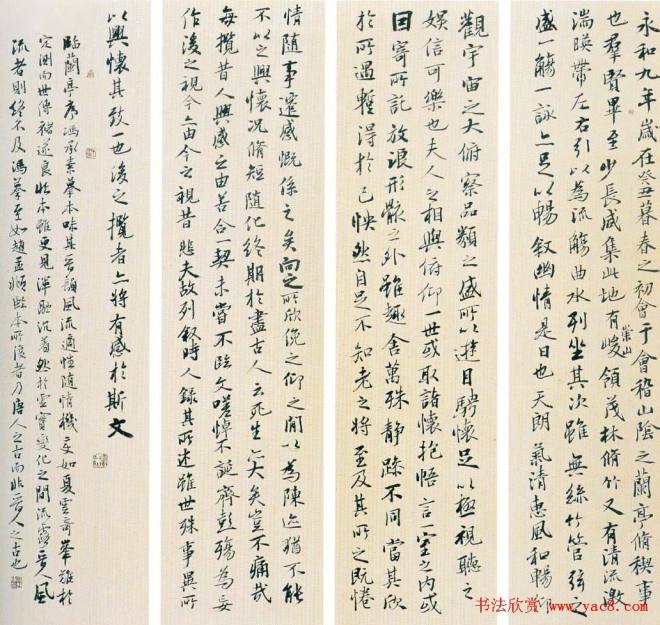 永和九年歲在癸丑暮春之初會于會稽山陰之蘭亭脩稧事
也羣賢畢至少長咸集此地有峻領茂林脩竹又有清流激
崇山
湍暎帶左右引以為流觴曲水列坐其次雖無絲竹管弦之
盛一觴一詠亦足以暢叙幽情是日也天朗氣清惠風和暢仰
觀宇宙之大俯察品類之盛所以遊目騁懷足以極視聽之
娛信可樂也夫人之相與俯仰一世或取諸懷抱悟言一室之內或
因寄所託放浪形骸之外雖趣舍萬殊靜躁不同當其欣
於所遇暫得於己怏然自足不知老之將至及其所之既惓
情隨事遷感慨係之矣向之所欣俛仰之間以為陳迹猶不能
不以之興懷況脩短隨化終期於盡古人云死生亦大矣豈不痛哉
每攬昔人興感之由若合一契未嘗不臨文嗟悼不能喻之於懷固知一死生為虛誕齊彭殤為妄
作後之視今亦由今之視昔悲夫故列叙時人錄其所述雖世殊事異所
以興懷其致一也後之攬者亦將有感於斯文
臨蘭亭序馮承素摹本味其晉韻風流適恆隨情機變如夏雲奇峯雖於
定測而世傳褚遂良臨本雖更見渾融沉着然於雲實變化之間流露晉人風
流者則終不及馮摹至如趙孟頫臨本所傳者乃唐人之古而非晉人之古也
书法欣赏 www.yac8.com